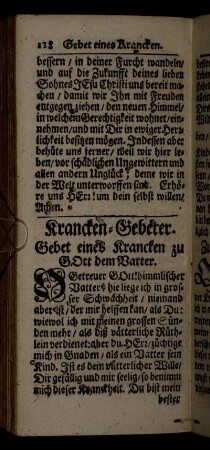 128 Gebet eines Krancken.
bessern / in deiner Furcht wandeln /
und auf die Zukunfft deines lieben
Sohnes JEsu Christi uns bereit ma-
chen / damit wir Ihn mit Freuden
entgegen ziehen / den neuen Himmel /
in welchem Gerechtigkeit wohnet / ein-
nehmen / und mit Dir in ewiger Herr-
lichkeit besitzen mögen. Indessen aber
behüte uns ferner / weil wir hier le-
ben / vor schädlichen Ungewittern und
allen andern Unglück / deme wir in
der Welt unterworffen sind. Erhö-
re uns HErr! um dein selbst willen /
Amen.
Krancken-Gebeter.
Gebet eines Krancken zu
GOtt dem Vatter.
Getreuer GOtt! himmlischer
Vatter! hie liege ich in gros-
ser Schwachheit / niemand
aber ist / der mir helffen kan / als Du:
wiewol ich mit meinen grossen Sün-
den mehr / als diß vätterliche Rüth-
lein verdienet: aber du HErr / züchtige
mich in Gnaden / als ein Vatter sein
Kind. Ist es dein vätterlicher Wille /
Dir gefällig und mir seelig / so benimm
mich dieser Kranckheit. Du bist mein
bester